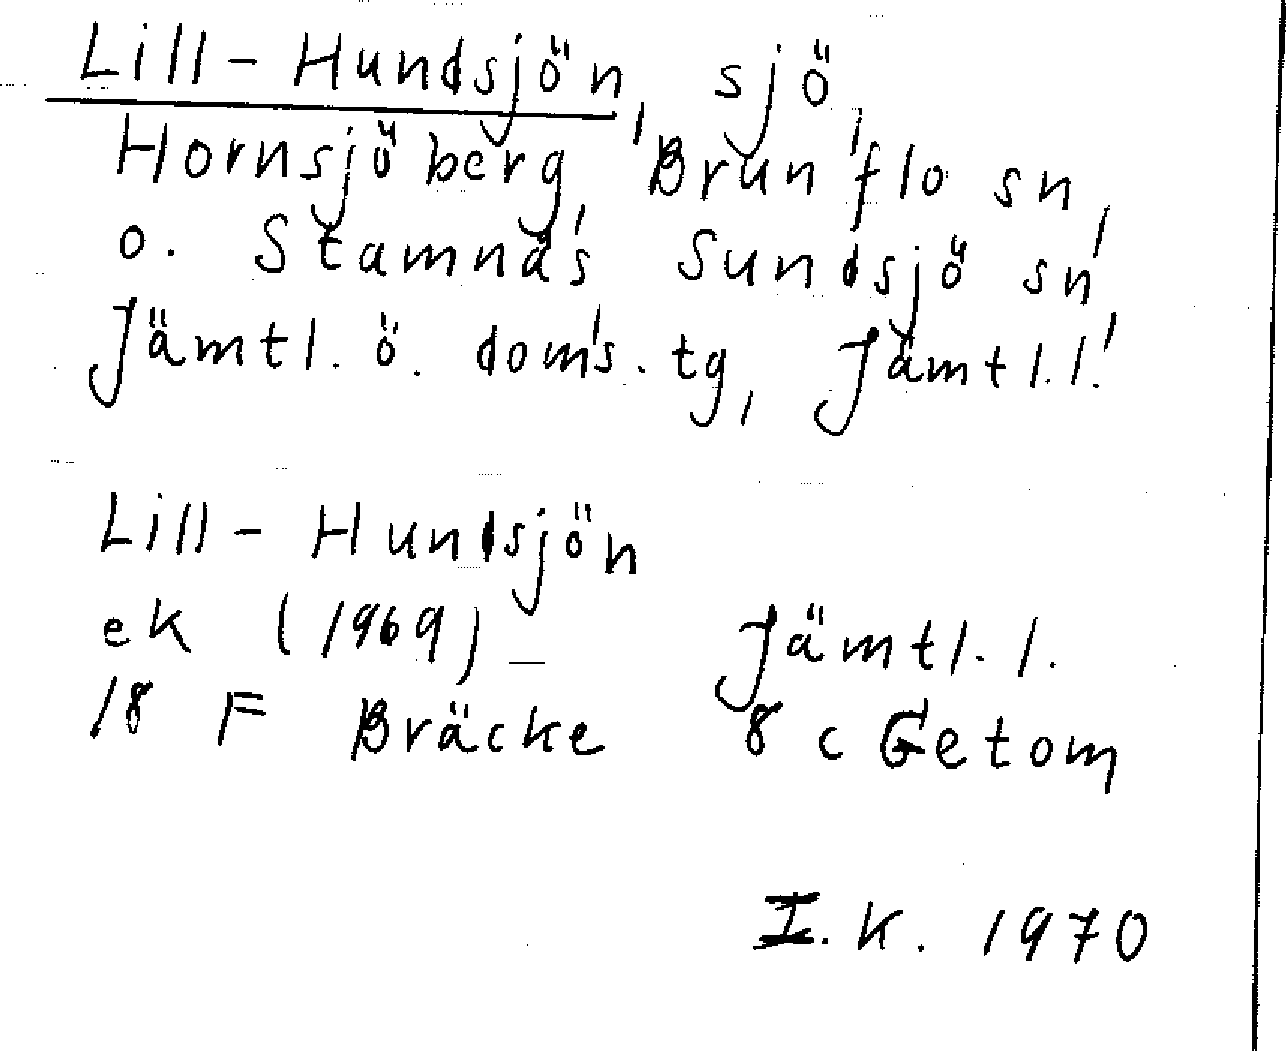 Lill-Hundsjön, sjö,
Hornsjöberg, Brunflo sn,
o. Stamnäs, Sundsjö sn,
Jämtl. ö. doms. tg, Jämtl. l.
Lill-Hundsjön
ek (1969) Jämtl. l.
18 F Bräcke 8 c Getom
I.K. 1970